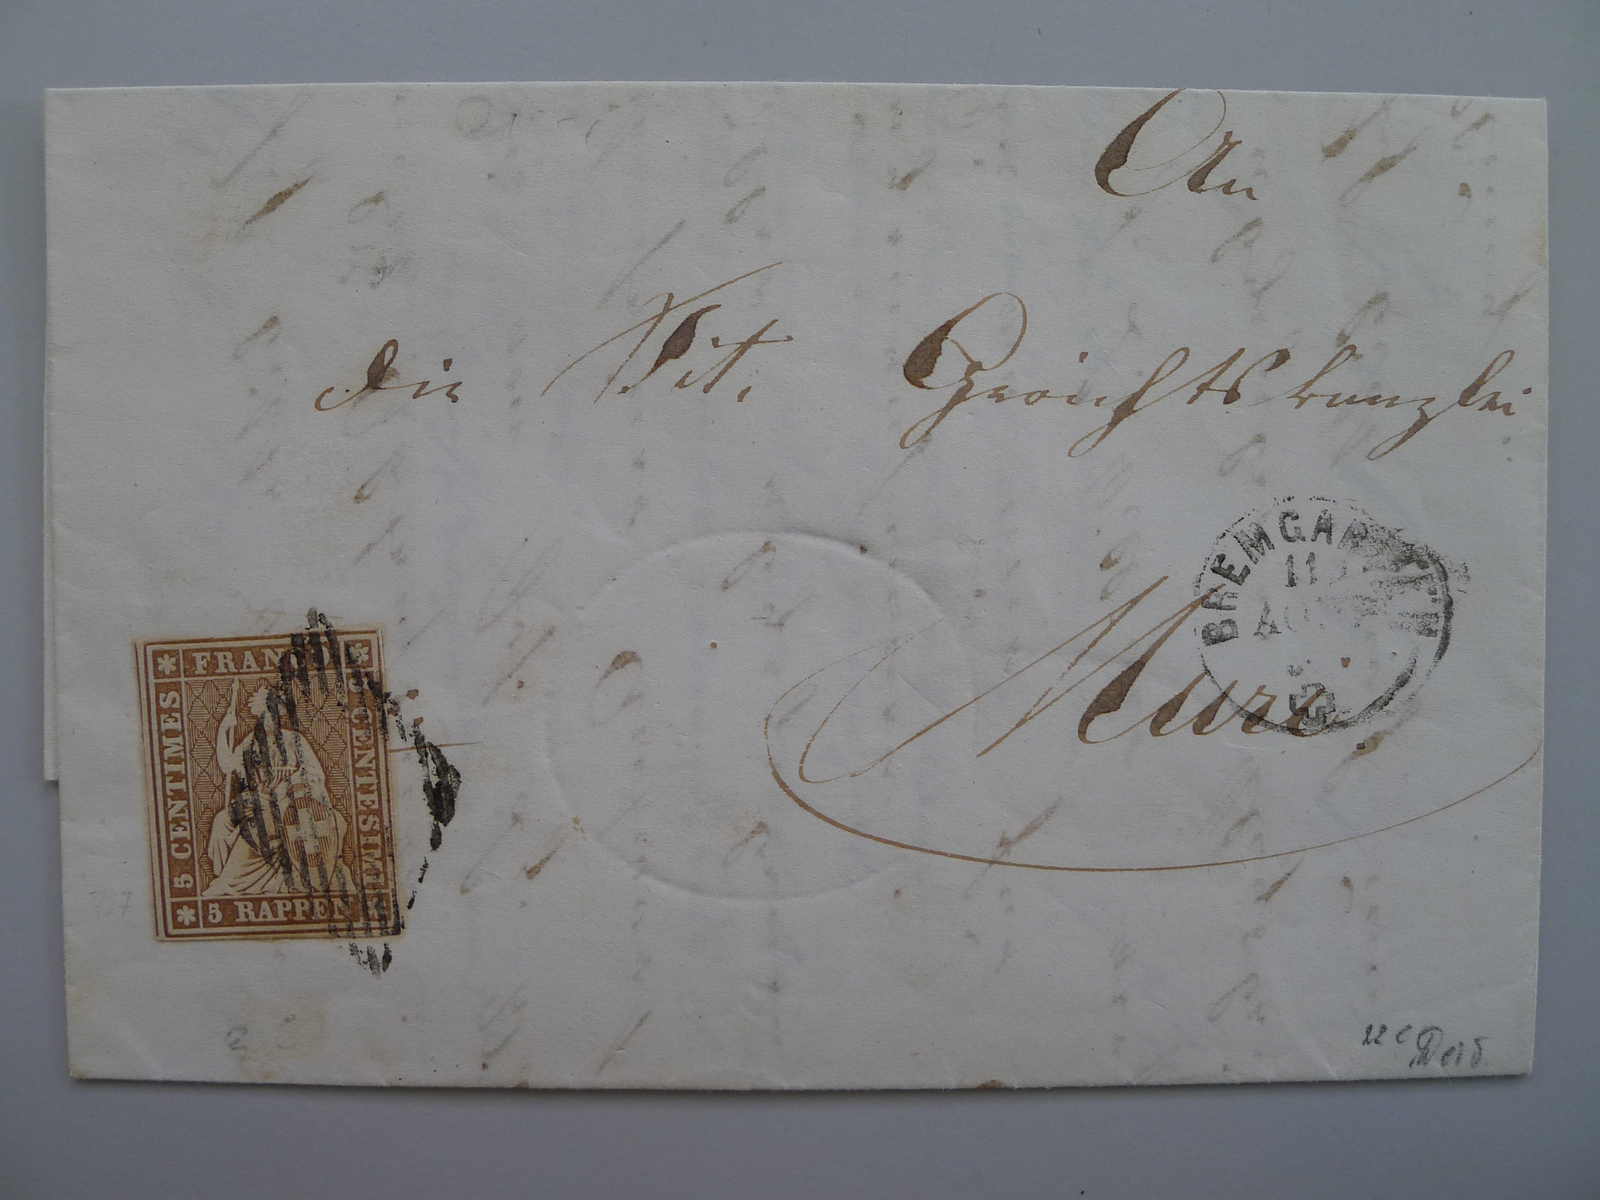 An
die Tit. Gerichtskanzlei
Muri.
BREMGARTEN
11
FRANCO
5 CENTIMES
5 RAPPEN
22 C